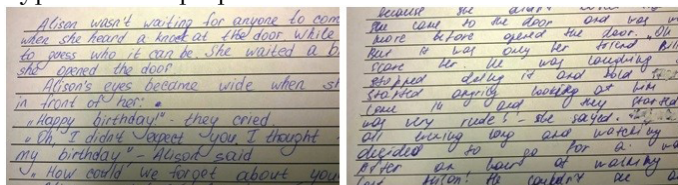 Alison wasn't waiting for anyone to com
when she heard a knock at the door. While
to guess who it can be. She waited a b
she opened the door.
Alison's eyes became wide when s
in front of her:
„Happy birthday!" - they cried
„Oh, I didn't expect you. I thought
my birthday" - Alison said
„How could we forget about you
because she
she came to the door and was
more before opend the door. „Oh
But it was only her friend
scare her. He was laughing
stopped doing it and told
started angrily looking at him
came in and they started
was very rude" - she sayed.
all evning long and watching
decided to go for a
After an hour of walking